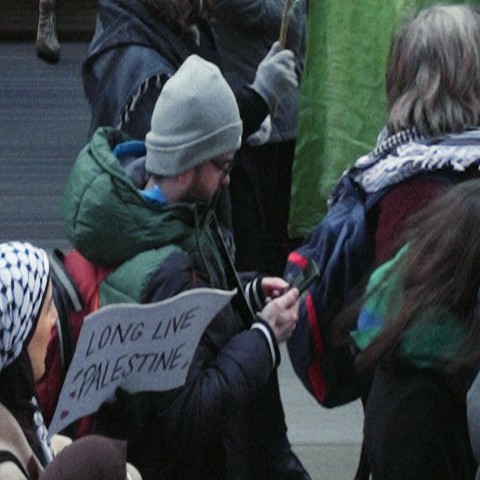 LONG LIVE
PALESTINE,